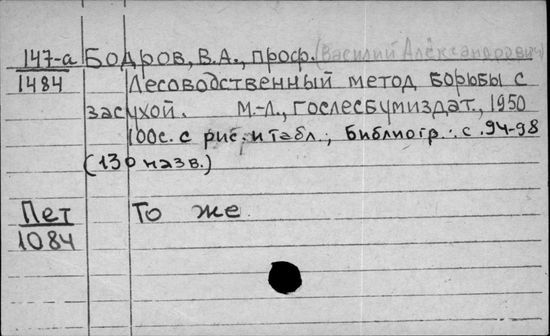 147-а Бодров, В.А., проф. (Василий Александрович)
1484 Лесоводственный метод борьбы с
засухой. М.-Л., Гослесбумиздат, 1950
100с. с рис. и табл.; Библиогр.: с. 94-98
(130 назв.)
Пет То же
1084